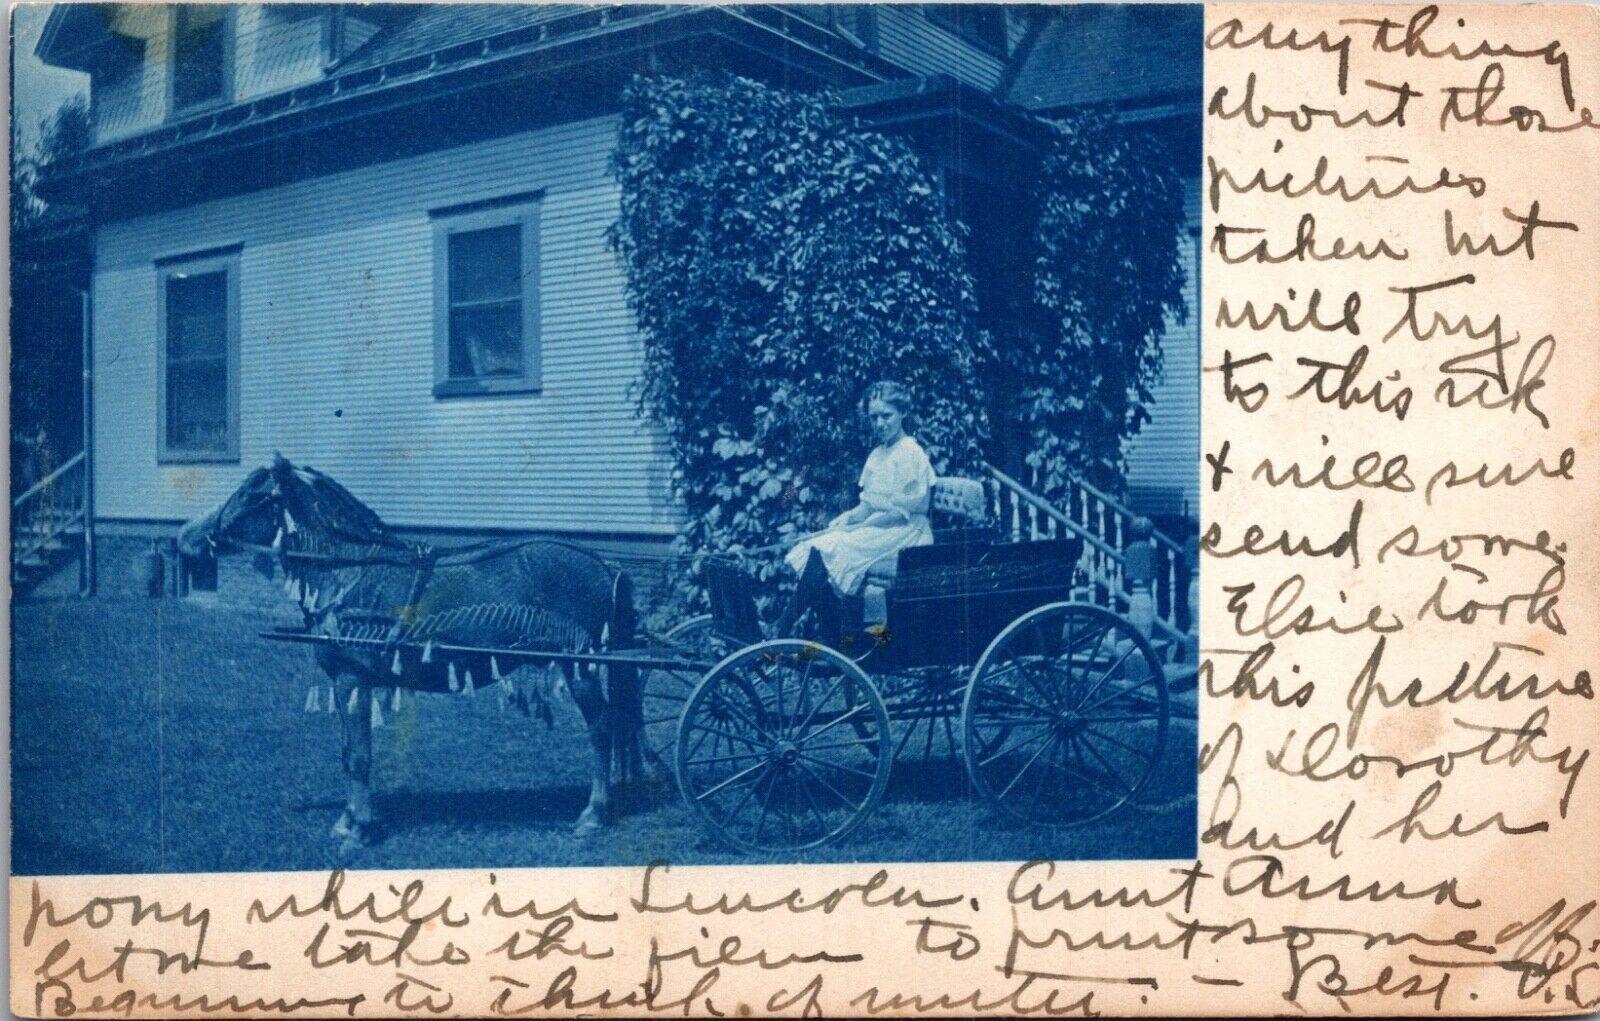 anything
about those
pictures
taken but
will try
to this wk
+ will sure
send some.
Elsie took
this picture
of Dorothy
and her
pony while in Lincoln. Aunt Anna
let me take the film to print some off
Beginning to think of winter. - Best.